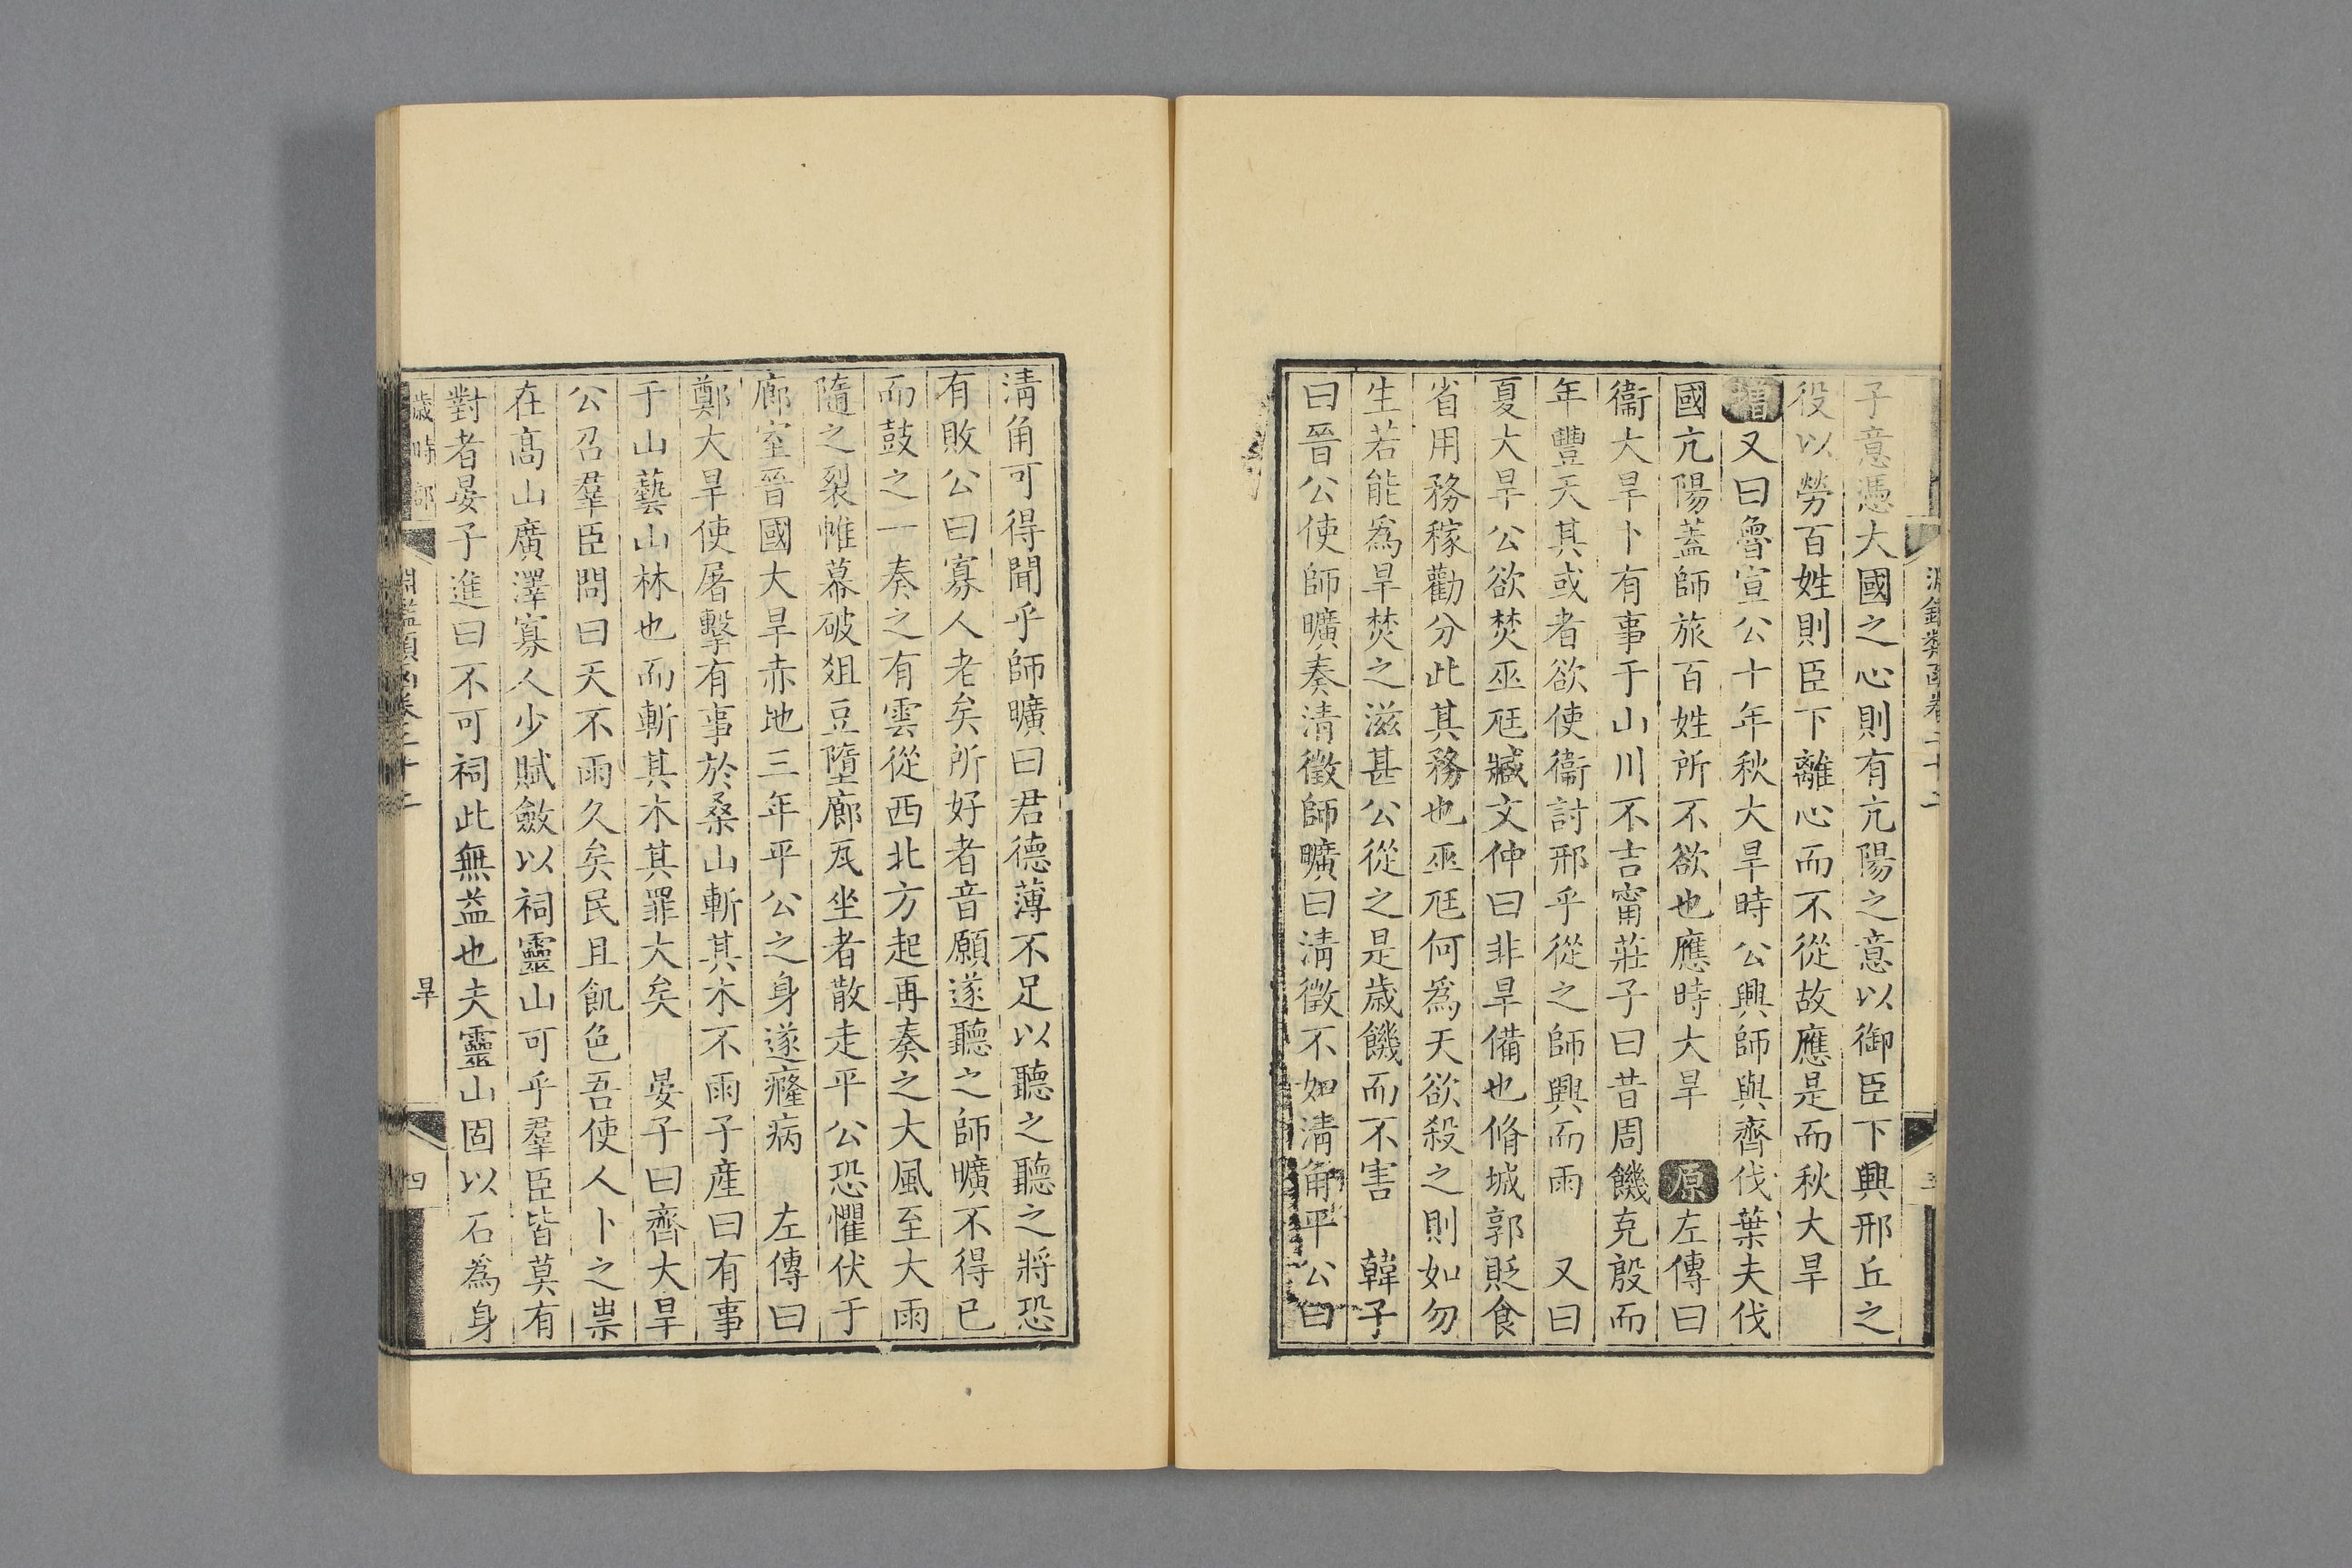 淵鑑類函卷二十二
子意憑大國之心則有亢陽之意以御臣下興邢丘之
役以勞百姓則臣下離心而不從故應是而秋大旱
增又曰魯宣公十年秋大旱時公興師與齊伐葉夫伐
國亢陽蓋師旅百姓所不欲也應時大旱　原左傳曰
衞大旱卜有事于山川不吉甯莊子曰昔周饑克殷而
年豐天其或者欲使衞討邢乎從之師興而雨　又曰
夏大旱公欲焚巫尫臧文仲曰非旱備也脩城郭貶食
省用務穡勸分此其務也巫尫何爲天欲殺之則如勿
生若能爲旱焚之滋甚公從之是歲饑而不害　韓子
曰晉公使師曠奏清徵師曠曰淸徵不如淸角平公曰
淸角可得聞乎師曠曰君德薄不足以聽之聽之將恐
有敗公曰寡人老矣所好者音願遂聽之師曠不得已
而鼓之一奏之有雲從西北方起再奏之大風至大雨
隨之裂帷幕破俎豆墮廊瓦坐者散走平公恐懼伏于
廊室晉國大旱赤地三年平公之身遂癃病　左傳曰
鄭大旱使屠擊有事於桑山斬其木不雨子產曰有事
于山藝山林也而斬其木其罪大矣　晏子曰齊大旱
公召羣臣問曰天不雨久矣民且飢色吾使人卜之祟
在高山廣澤寡人少賦斂以祠靈山可乎羣臣皆莫有
對者晏子進曰不可祠此無益也夫靈山固以石爲身
歲時部　淵鑑類函卷二十二　旱　四